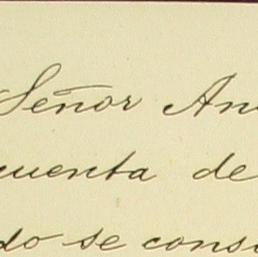 Señor An
cuenta de
do se cons